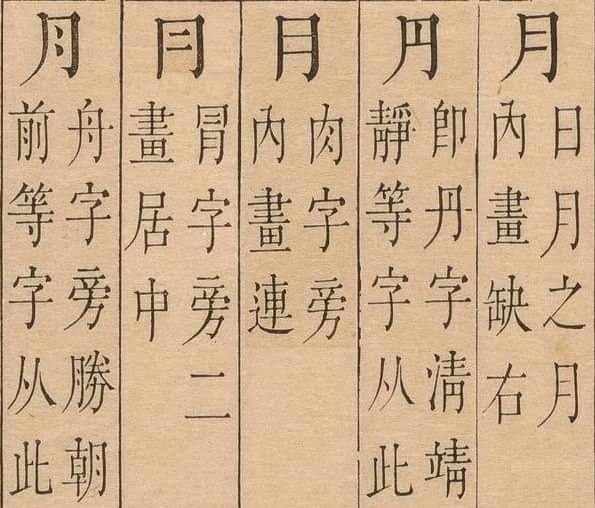 月
日月之月
內畫缺右
円
卽丹字淸靖
靜等字从此
⺼
肉字旁
內畫連
冃
冐字旁二
畫居中
⺝
舟字旁勝朝
前等字从此